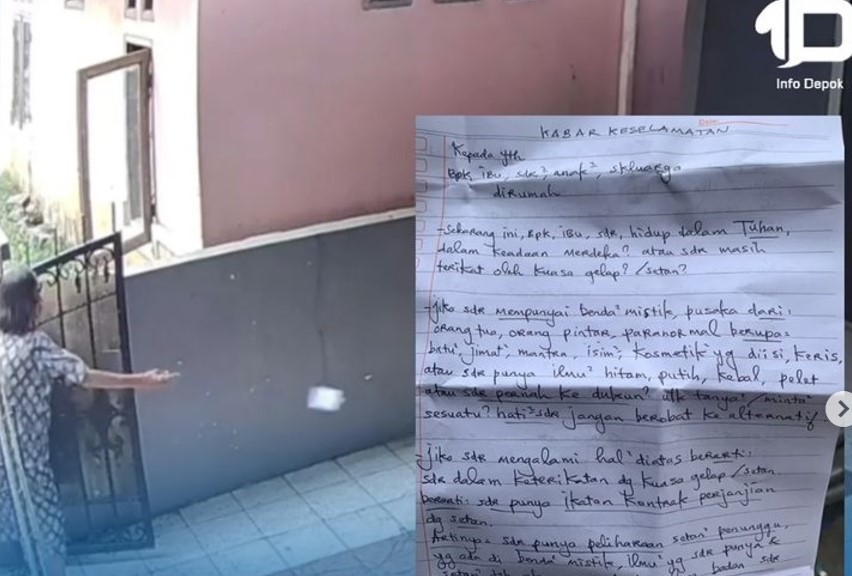 Info Depok
KABAR KESELAMATAN
Kepada yth
Bpk, iBu, sdr², anak², skluarga
dirumah
-Sekarang ini, Bpk, iBu, sdr, hidup dalam Tuhan,
dalam keadaan merdeka? atau sdr masih
terikat oleh kuasa gelap? /setan?
-jika sdr mempunyai benda² mistik, pusaka dari:
orang tua, orang pintar, paranormal berupa:
batu², jimat², mantra, isim², kosmetik yg diisi, keris,
atau sdr punya ilmu² hitam, putih, kebal, pelet
atau sdr pernah ke dukun² utk tanya²/minta²
sesuatu? hati² sdr jangan berobat ke alternatif.
-jika sdr mengalami hal² diatas berarti:
sdr dalam keterikatan dg kuasa gelap/setan.
berarti: sdr punya ikatan kontrak perjanjian
dg setan.
Artinya: sdr punya peliharaan setan² penunggu,
yg ada di benda² mistik, ilmu² yg sdr punya &
badan sdr